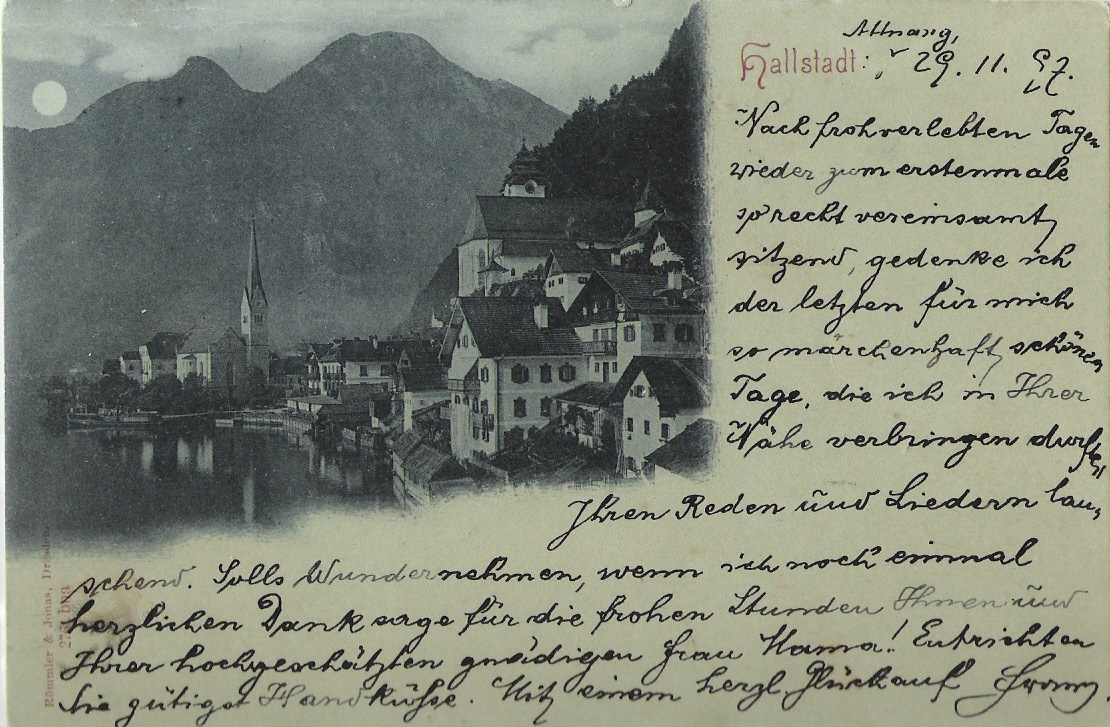 Attnang,
Hallstadt: 29. 11. 97.
Nach froh verlebten Tagen
wieder zum erstenmale
so recht vereinsamt
sitzend, gedenke ich
der letzten für mich
so märchenhaft schönen
Tage, die ich in Ihrer
Nähe verbringen durfte,
Ihren Reden und Liedern lau-
schend. Solls Wundernehmen, wenn ich noch einmal
herzlichen Dank sage für die frohen Stunden Ihnen und
Ihrer hochgeschätzten gnädigen Frau Mama! Entrichten
Sie gütigst Handküße. Mit einem herzl Glückauf Franz
Römmler & Jonas, Dresden.